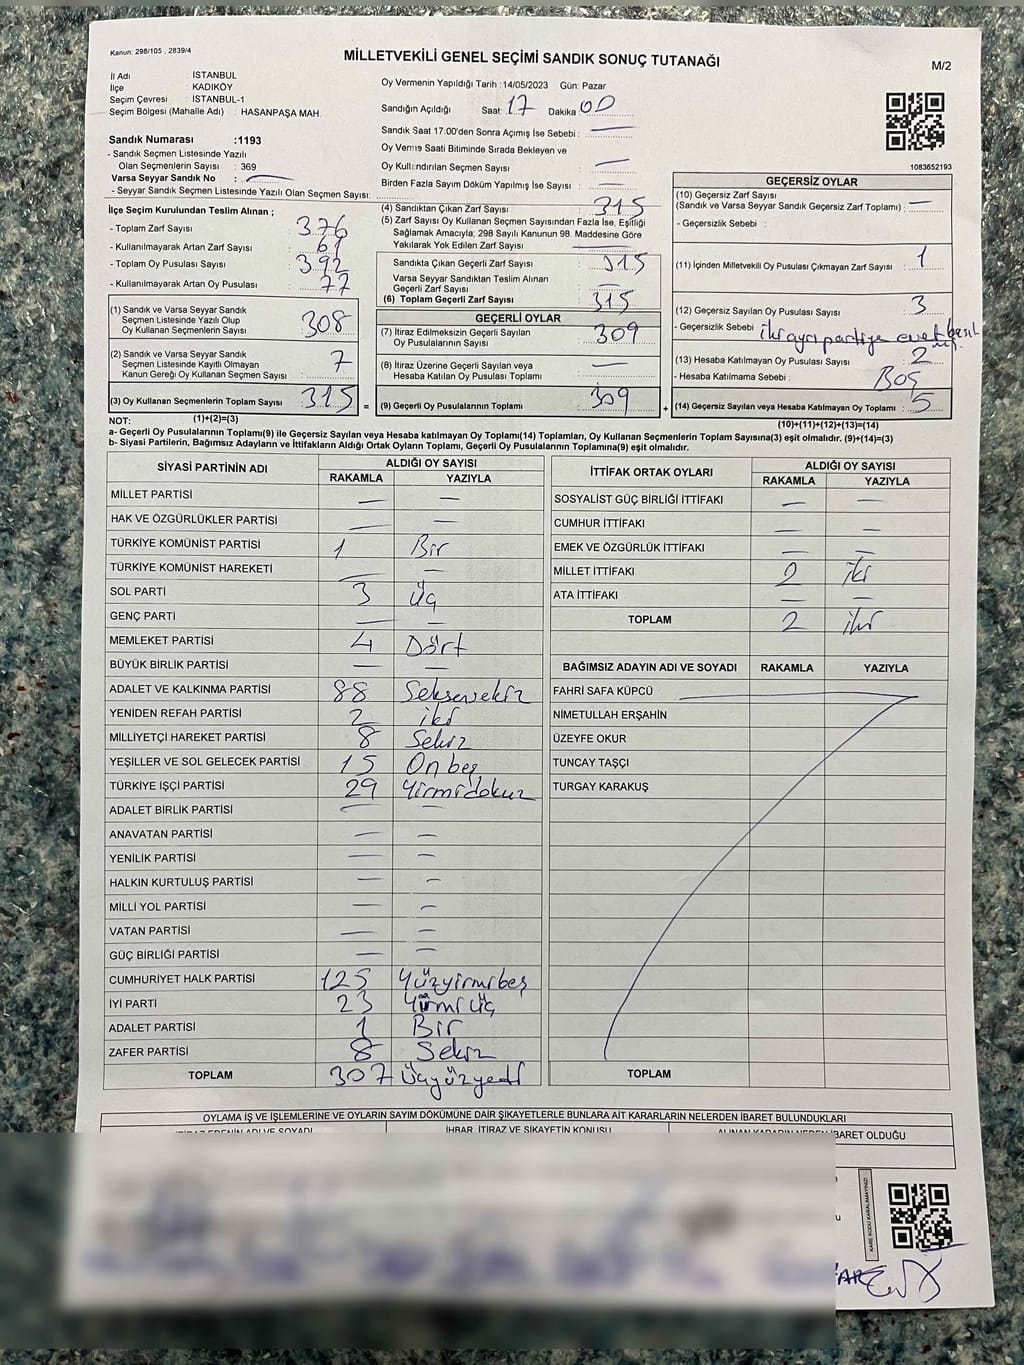 Kanun: 298/105 , 2839/4
MİLLETVEKİLİ GENEL SEÇİMİ SANDIK SONUÇ TUTANAĞI
M/2
İl Adı : İSTANBUL
İlçe : KADIKÖY
Seçim Çevresi : İSTANBUL-1
Seçim Bölgesi (Mahalle Adı) : HASANPAŞA MAH.
Oy Vermenin Yapıldığı Tarih :14/05/2023 Gün: Pazar
Sandığın Açıldığı Saat: 17 Dakika 00
Sandık Saat 17:00'den Sonra Açmış İse Sebebi : —
Oy Verme Saati Bitiminde Sırada Bekleyen ve
Oy Kullandırılan Seçmen Sayısı : —
Birden Fazla Sayım Döküm Yapılmış İse Sayısı : —
1083652193
Sandık Numarası :1193
- Sandık Seçmen Listesinde Yazılı
Olan Seçmenlerin Sayısı : 369
Varsa Seyyar Sandık No : —
- Seyyar Sandık Seçmen Listesinde Yazılı Olan Seçmen Sayısı:
İlçe Seçim Kurulundan Teslim Alınan ;
- Toplam Zarf Sayısı : 376
- Kullanılmayarak Artan Zarf Sayısı : 61
- Toplam Oy Pusulası Sayısı : 392
- Kullanılmayarak Artan Oy Pusulası : 77
(1) Sandık ve Varsa Seyyar Sandık
Seçmen Listesinde Yazılı Olup
Oy Kullanan Seçmenlerin Sayısı : 308
(2) Sandık ve Varsa Seyyar Sandık
Seçmen Listesinde Kayıtlı Olmayan
Kanun Gereği Oy Kullanan Seçmen Sayısı : 7
(3) Oy Kullanan Seçmenlerin Toplam Sayısı : 315 =
(1)+(2)=(3)
(4) Sandıktan Çıkan Zarf Sayısı : 315
(5) Zarf Sayısı Oy Kullanan Seçmen Sayısından Fazla İse, Eşitliği
Sağlamak Amacıyla; 298 Sayılı Kanunun 98. Maddesine Göre
Yakılarak Yok Edilen Zarf Sayısı : —
Sandıkta Çıkan Geçerli Zarf Sayısı : 315
Varsa Seyyar Sandıktan Teslim Alınan
Geçerli Zarf Sayısı : —
(6) Toplam Geçerli Zarf Sayısı : 315
GEÇERLİ OYLAR
(7) İtiraz Edilmeksizin Geçerli Sayılan
Oy Pusulalarının Sayısı : 309
(8) İtiraz Üzerine Geçerli Sayılan veya
Hesaba Katılan Oy Pusulası Toplamı : —
(9) Geçerli Oy Pusulalarının Toplamı : 309 +
GEÇERSİZ OYLAR
(10) Geçersiz Zarf Sayısı
(Sandık ve Varsa Seyyar Sandık Geçersiz Zarf Toplamı) : —
- Geçersizlik Sebebi :
(11) İçinden Milletvekili Oy Pusulası Çıkmayan Zarf Sayısı : 1
(12) Geçersiz Sayılan Oy Pusulası Toplamı : 3
- Geçersizlik Sebebi : iki ayrı partiye evet basıl
mış.
(13) Hesaba Katılmayan Oy Pusulası Sayısı : 2
- Hesaba Katılmama Sebebi : BOŞ
(14) Geçersiz Sayılan veya Hesaba Katılmayan Oy Toplamı : 5
(10)+(11)+(12)+(13)=(14)
NOT:
a- Geçerli Oy Pusulalarının Toplamı(9) ile Geçersiz Sayılan veya Hesaba katılmayan Oy Toplamı(14) Toplamları, Oy Kullanan Seçmenlerin Toplam Sayısına(3) eşit olmalıdır. (9)+(14)=(3)
b- Siyasi Partilerin, Bağımsız Adayların ve İttifakların Aldığı Ortak Oyların Toplamı, Geçerli Oy Pusulalarının Toplamına(9) eşit olmalıdır.
SİYASİ PARTİNİN ADI
ALDIĞI OY SAYISI
RAKAMLA YAZIYLA
MİLLET PARTİSİ — —
HAK VE ÖZGÜRLÜKLER PARTİSİ — —
TÜRKİYE KOMÜNİST PARTİSİ 1 Bir
TÜRKİYE KOMÜNİST HAREKETİ — —
SOL PARTİ 3 Üç
GENÇ PARTİ — —
MEMLEKET PARTİSİ 4 Dört
BÜYÜK BİRLİK PARTİSİ — —
ADALET VE KALKINMA PARTİSİ 88 Seksensekiz
YENİDEN REFAH PARTİSİ 2 iki
MİLLİYETÇİ HAREKET PARTİSİ 8 Sekiz
YEŞİLLER VE SOL GELECEK PARTİSİ 15 Onbeş
TÜRKİYE İŞÇİ PARTİSİ 29 Yirmidokuz
ADALET BİRLİK PARTİSİ — —
ANAVATAN PARTİSİ — —
YENİLİK PARTİSİ — —
HALKIN KURTULUŞ PARTİSİ — —
MİLLİ YOL PARTİSİ — —
VATAN PARTİSİ — —
GÜÇ BİRLİĞİ PARTİSİ — —
CUMHURİYET HALK PARTİSİ 125 Yüzyirmibeş
İYİ PARTİ 23 Yirmiüç
ADALET PARTİSİ 1 Bir
ZAFER PARTİSİ 8 Sekiz
TOPLAM 307 Üçyüzyedi
İTTİFAK ORTAK OYLARI
ALDIĞI OY SAYISI
RAKAMLA YAZIYLA
SOSYALİST GÜÇ BİRLİĞİ İTTİFAKI — —
CUMHUR İTTİFAKI — —
EMEK VE ÖZGÜRLÜK İTTİFAKI — —
MİLLET İTTİFAKI 2 iki
ATA İTTİFAKI — —
TOPLAM 2 iki
BAĞIMSIZ ADAYIN ADI VE SOYADI RAKAMLA YAZIYLA
FAHRİ SAFA KÜPCÜ
NİMETULLAH ERŞAHİN
ÜZEYFE OKUR
TUNCAY TAŞÇI
TURGAY KARAKUŞ
TOPLAM
OYLAMA İŞ VE İŞLEMLERİNE VE OYLARIN SAYIM DÖKÜMÜNE DAİR ŞİKAYETLERLE BUNLARA AİT KARARLARIN NELERDEN İBARET BULUNDUKLARI
İTİRAZ EDENİN ADI VE SOYADI İHBAR, İTİRAZ VE ŞİKAYETİN KONUSU ALINAN KARARIN NEDEN İBARET OLDUĞU
KARE KODU KARALAMAYINIZ!